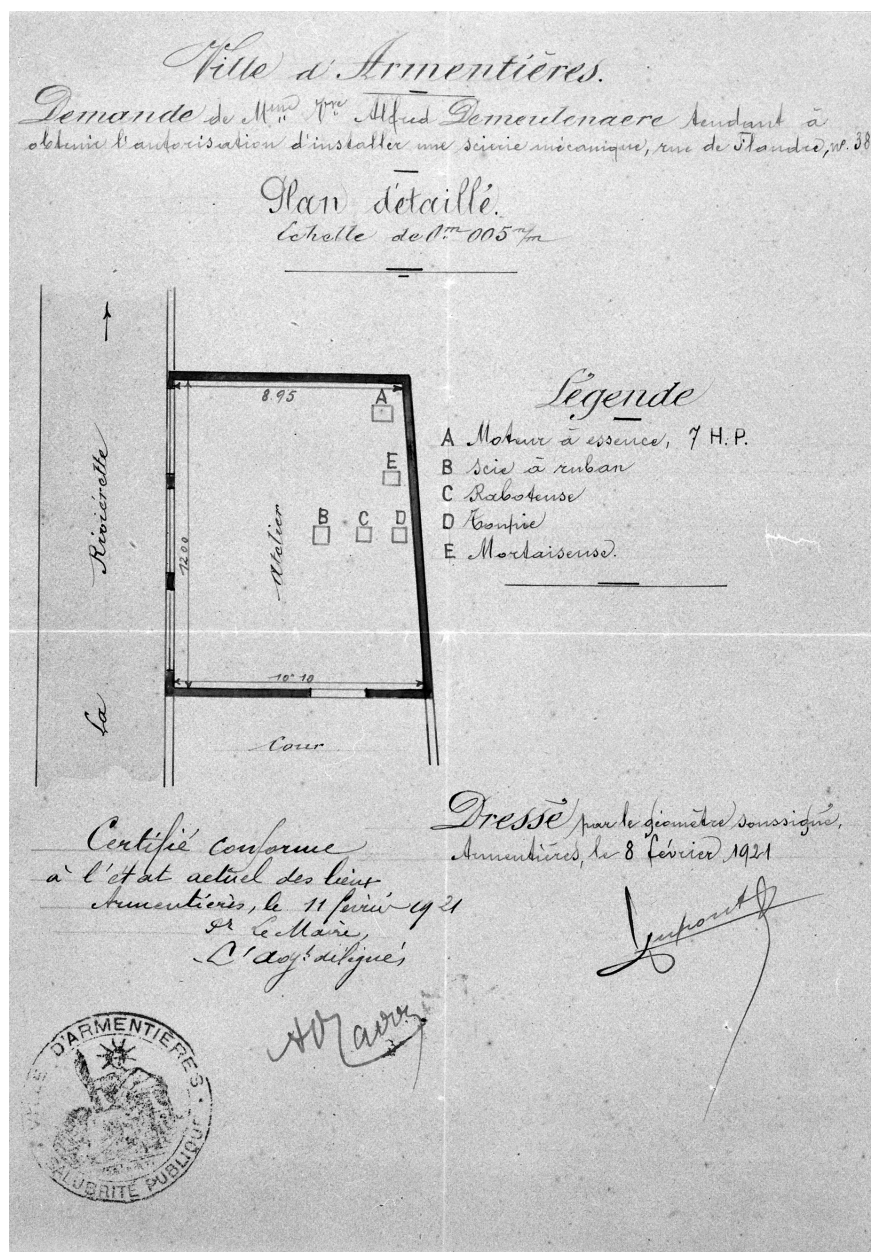 Ville d'Armentières.
Demande de Mme Vve Alfred Demeulenaere tendant à
obtenir l'autorisation d'installer une scierie mécanique, rue de Flandre, n°. 38
Plan détaillé.
Echelle de 0m 005 m/m
La Rivièrette
8.95
A
E
B C D
Atelier
1200
10.10
Cour
Légende
A Moteur à essence, 7 H.P.
B Scie à ruban
C Raboteuse
D Toupie
E Mortaiseuse.
Dressé par le géomètre soussigné,
Armentières, le 8 février 1921
Dupont
Certifié conforme
à l'état actuel des lieux
Armentières, le 11 février 1921
Pr Le Maire,
L'adjt délégué,
VILLE D'ARMENTIÈRES
SALUBRITÉ PUBLIQUE